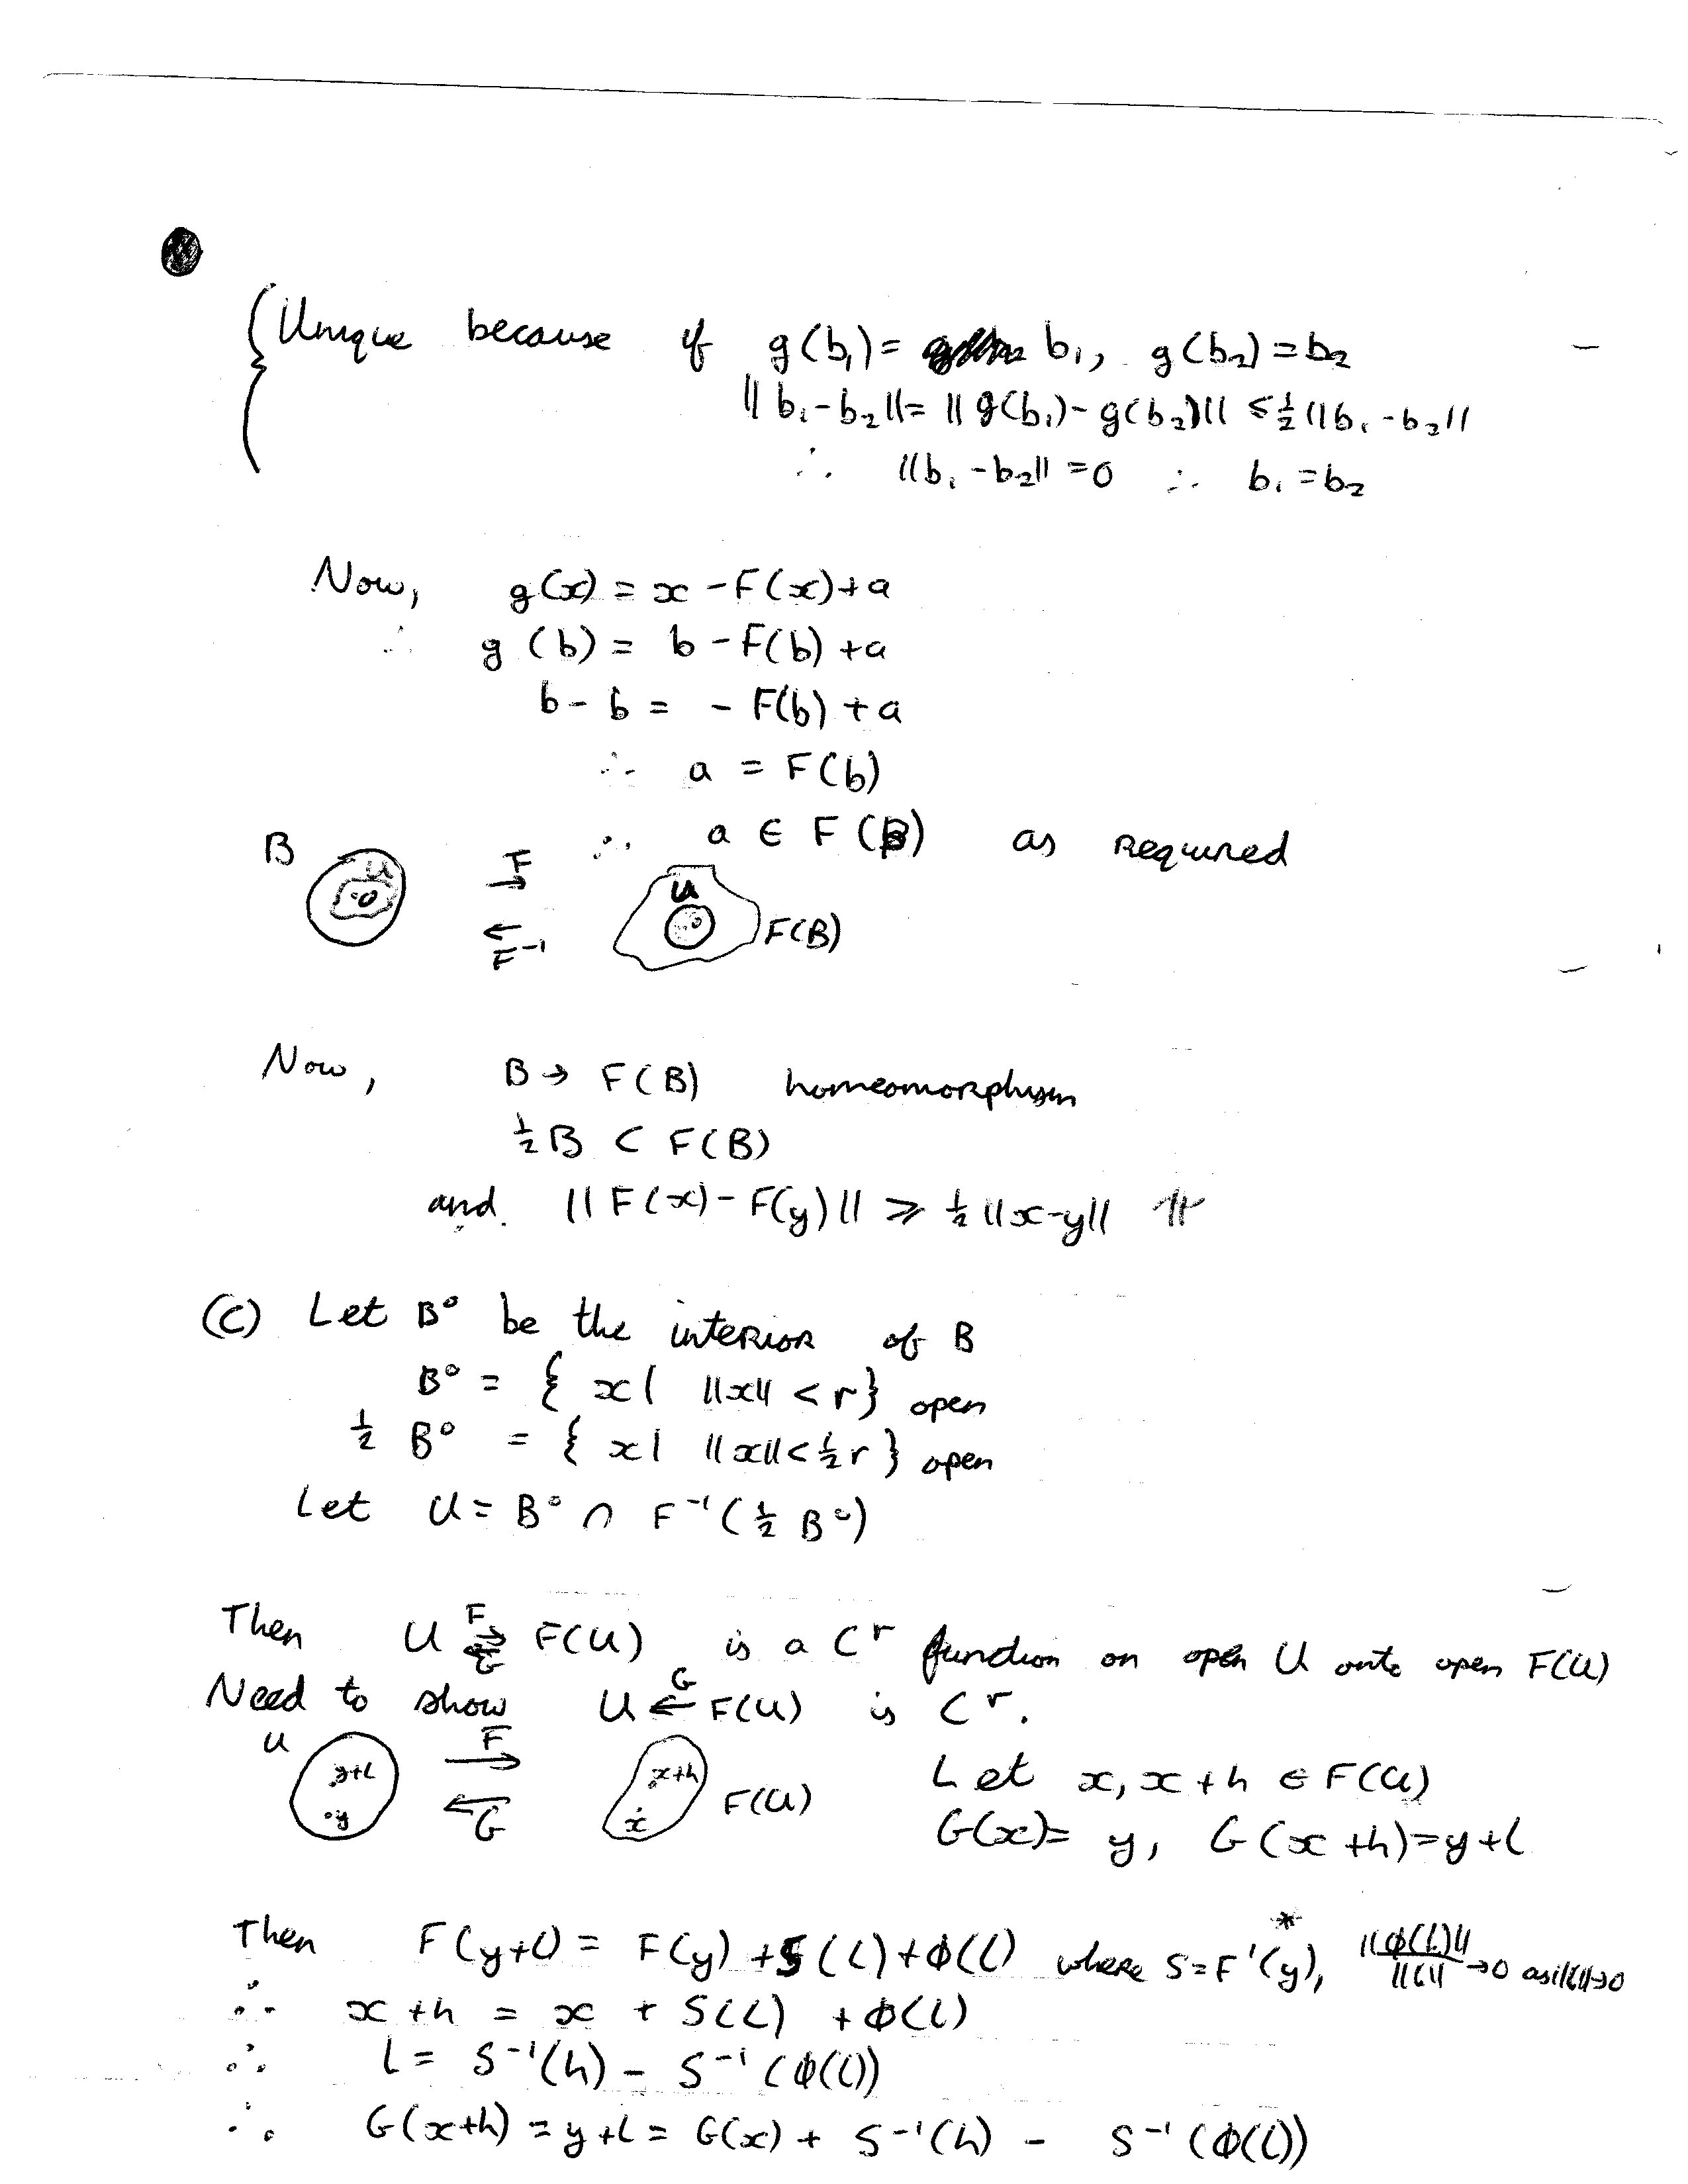 Unique because if g(b₁) = b₁, g(b₂) = b₂
||b₁ - b₂|| = ||g(b₁) - g(b₂)|| ≤ ½||b₁ - b₂||
∴ ||b₁ - b₂|| = 0 ∴ b₁ = b₂
Now, g(x) = x - F(x) + a
∴ g(b) = b - F(b) + a
b - b = - F(b) + a
∴ a = F(b)
∴ a ∈ F(B) as required
B U 0 F F⁻¹ U 0 F(B)
Now, B → F(B) homeomorphism
½B ⊂ F(B)
and ||F(x) - F(y)|| ≥ ½||x-y||
(c) Let B° be the interior of B
B° = { x | ||x|| < r } open
½ B° = { x | ||x|| < ½r } open
Let U = B° ∩ F⁻¹(½ B°)
Then U ⇄ F(U) is a Cʳ function on open U onto open F(U)
Need to show U ←G F(U) is Cʳ.
U y+l y F G x+h x F(U)
Let x, x+h ∈ F(U)
G(x) = y, G(x+h) = y+l
Then F(y+l) = F(y) + S(l) + ϕ(l) where S = F'(y)*, ||ϕ(l)||/||l|| → 0 as ||l|| → 0
∴ x+h = x + S(l) + ϕ(l)
∴ l = S⁻¹(h) - S⁻¹(ϕ(l))
∴ G(x+h) = y+l = G(x) + S⁻¹(h) - S⁻¹(ϕ(l))